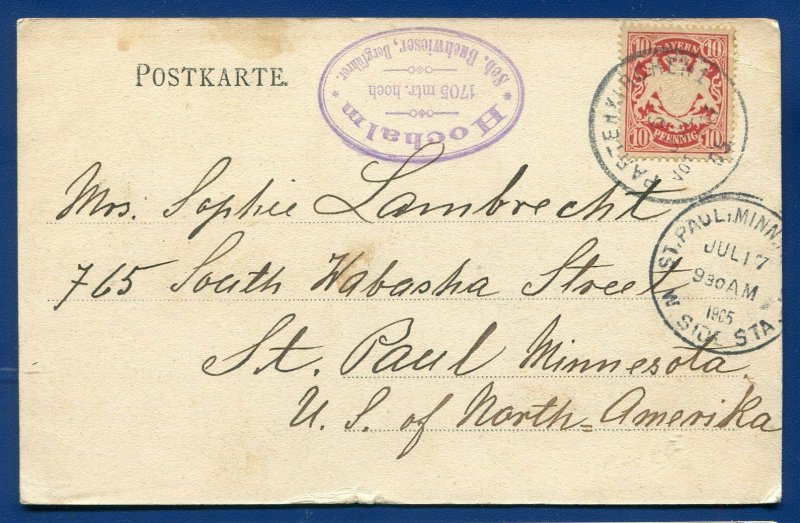 POSTKARTE.
* Hochalm *
1705 mtr. hoch
Seb. Buchwieser, Bergführer.
BAYERN
10 10
10 10
PFENNIG
PARTENKIRCHEN
05
Mrs. Sophie Lambrecht
765 South Wabasha Street
St. Paul Minnesota.
U. S. of North=Amerika
ST. PAUL, MINN.
JUL 17
930 AM
1905
W. SIDE STA.